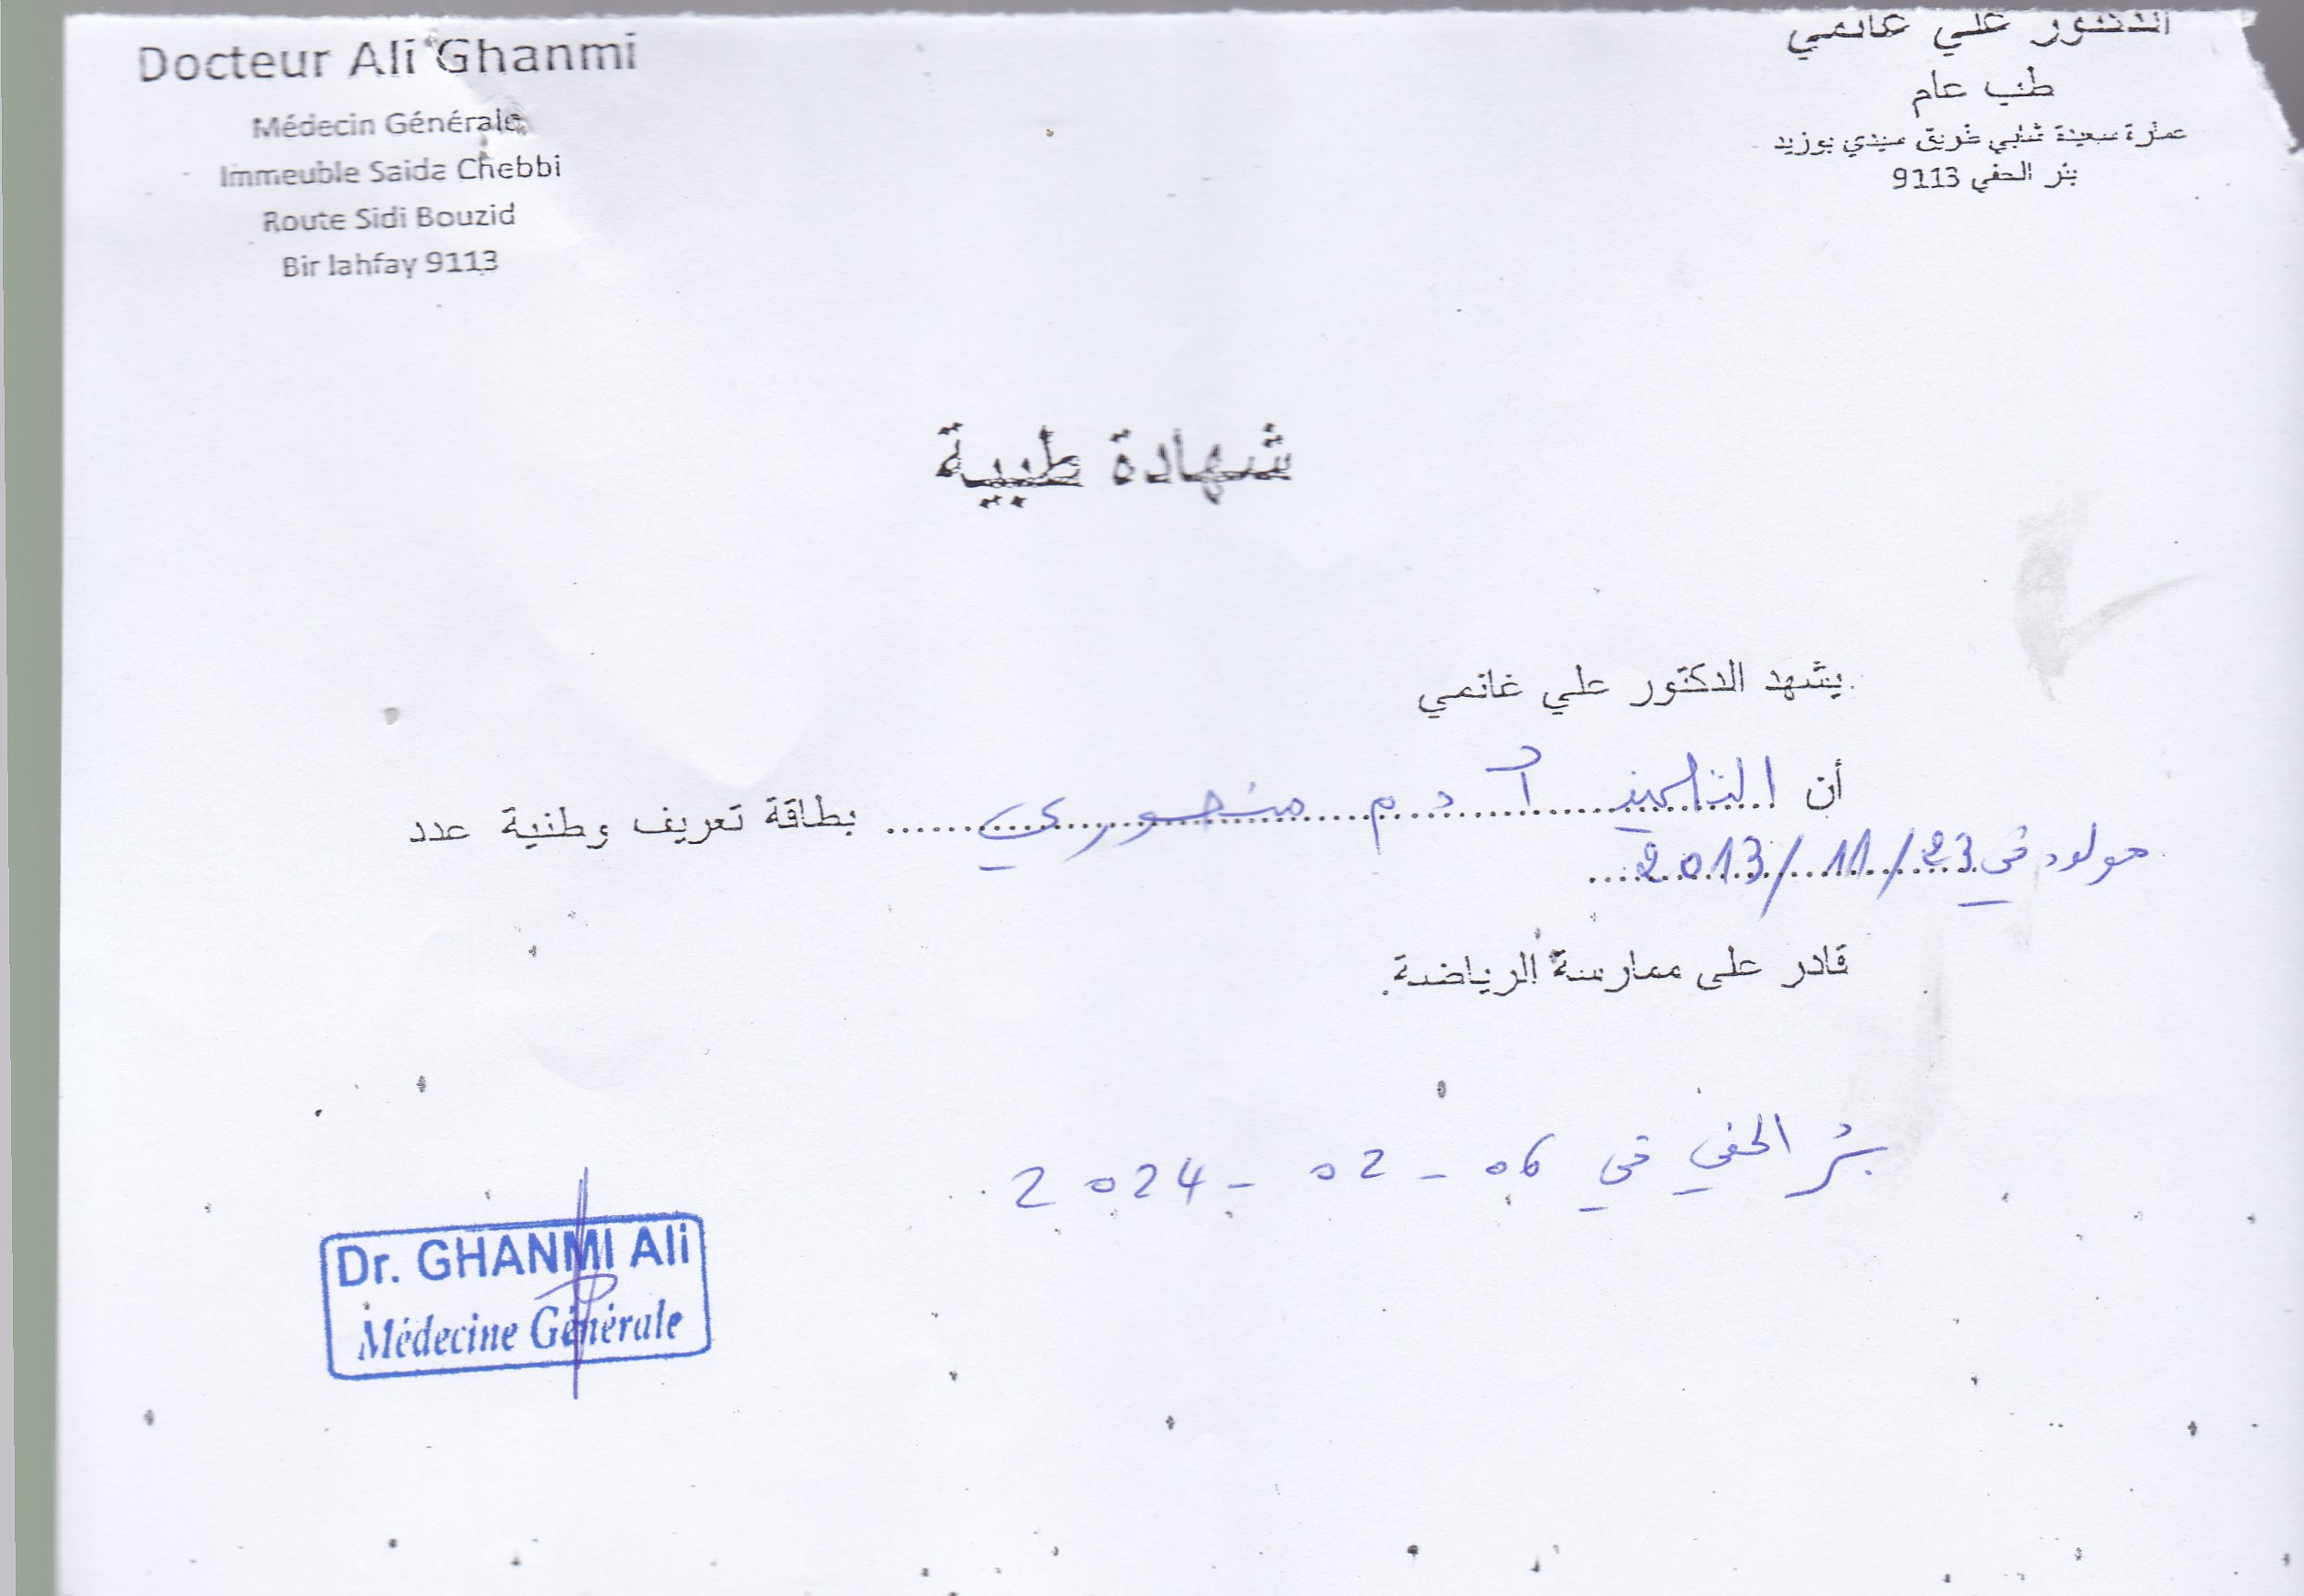 Docteur Ali Ghanmi
Médecin Générale
Immeuble Saida Chebbi
Route Sidi Bouzid
Bir lahfay 9113
الدكتور علي غانمي
طب عام
عمارة سعيدة شابي طريق سيدي بوزيد
بئر الحفي 9113
شهادة طبية
يشهد الدكتور علي غانمي
أن التلميذ آدم منصوري بطاقة تعريف وطنية عدد
مولود في 23/11/2013
قادر على ممارسة الرياضة.
بئر الحفي في 06 - 02 - 2024
Dr. GHANMI Ali
Médecine Générale